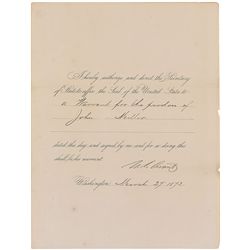 I hereby authorize and direct the Secretary
of State to affix the Seal of the United States to
a Warrant for the pardon of
John Miller
dated this day and signed by me and for so doing this
shall be his warrant.
U.S. Grant
Washington, March 27. 1872.